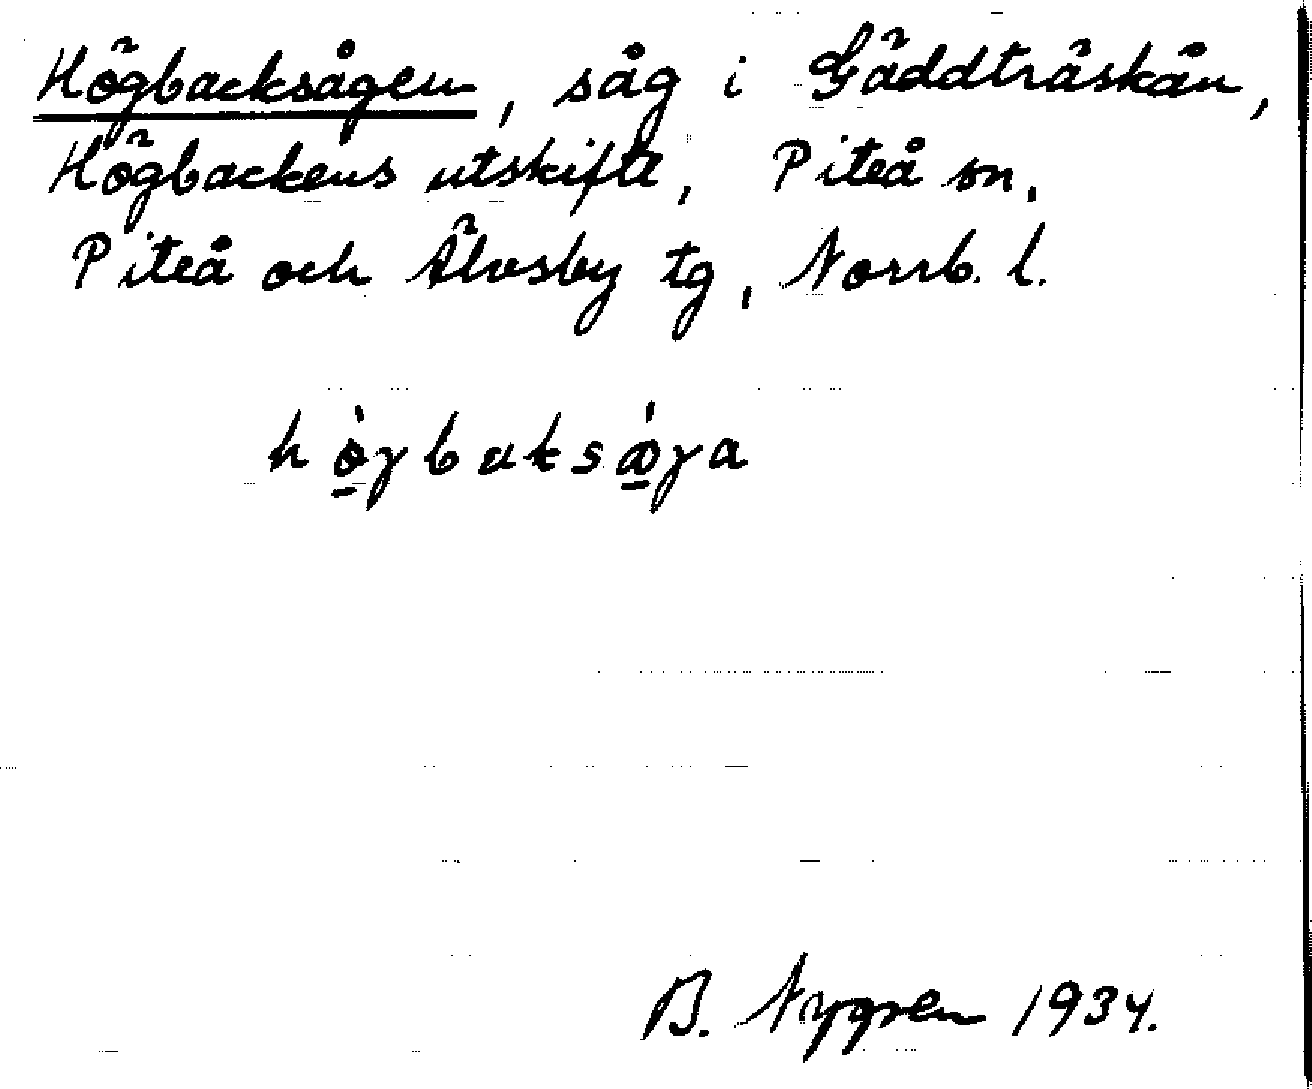 Högbacksågen, såg i Gäddträskån,
Högbackens utskifte, Piteå sn,
Piteå och Älvsby tg, Norrb. l.
B. Nygren 1934.